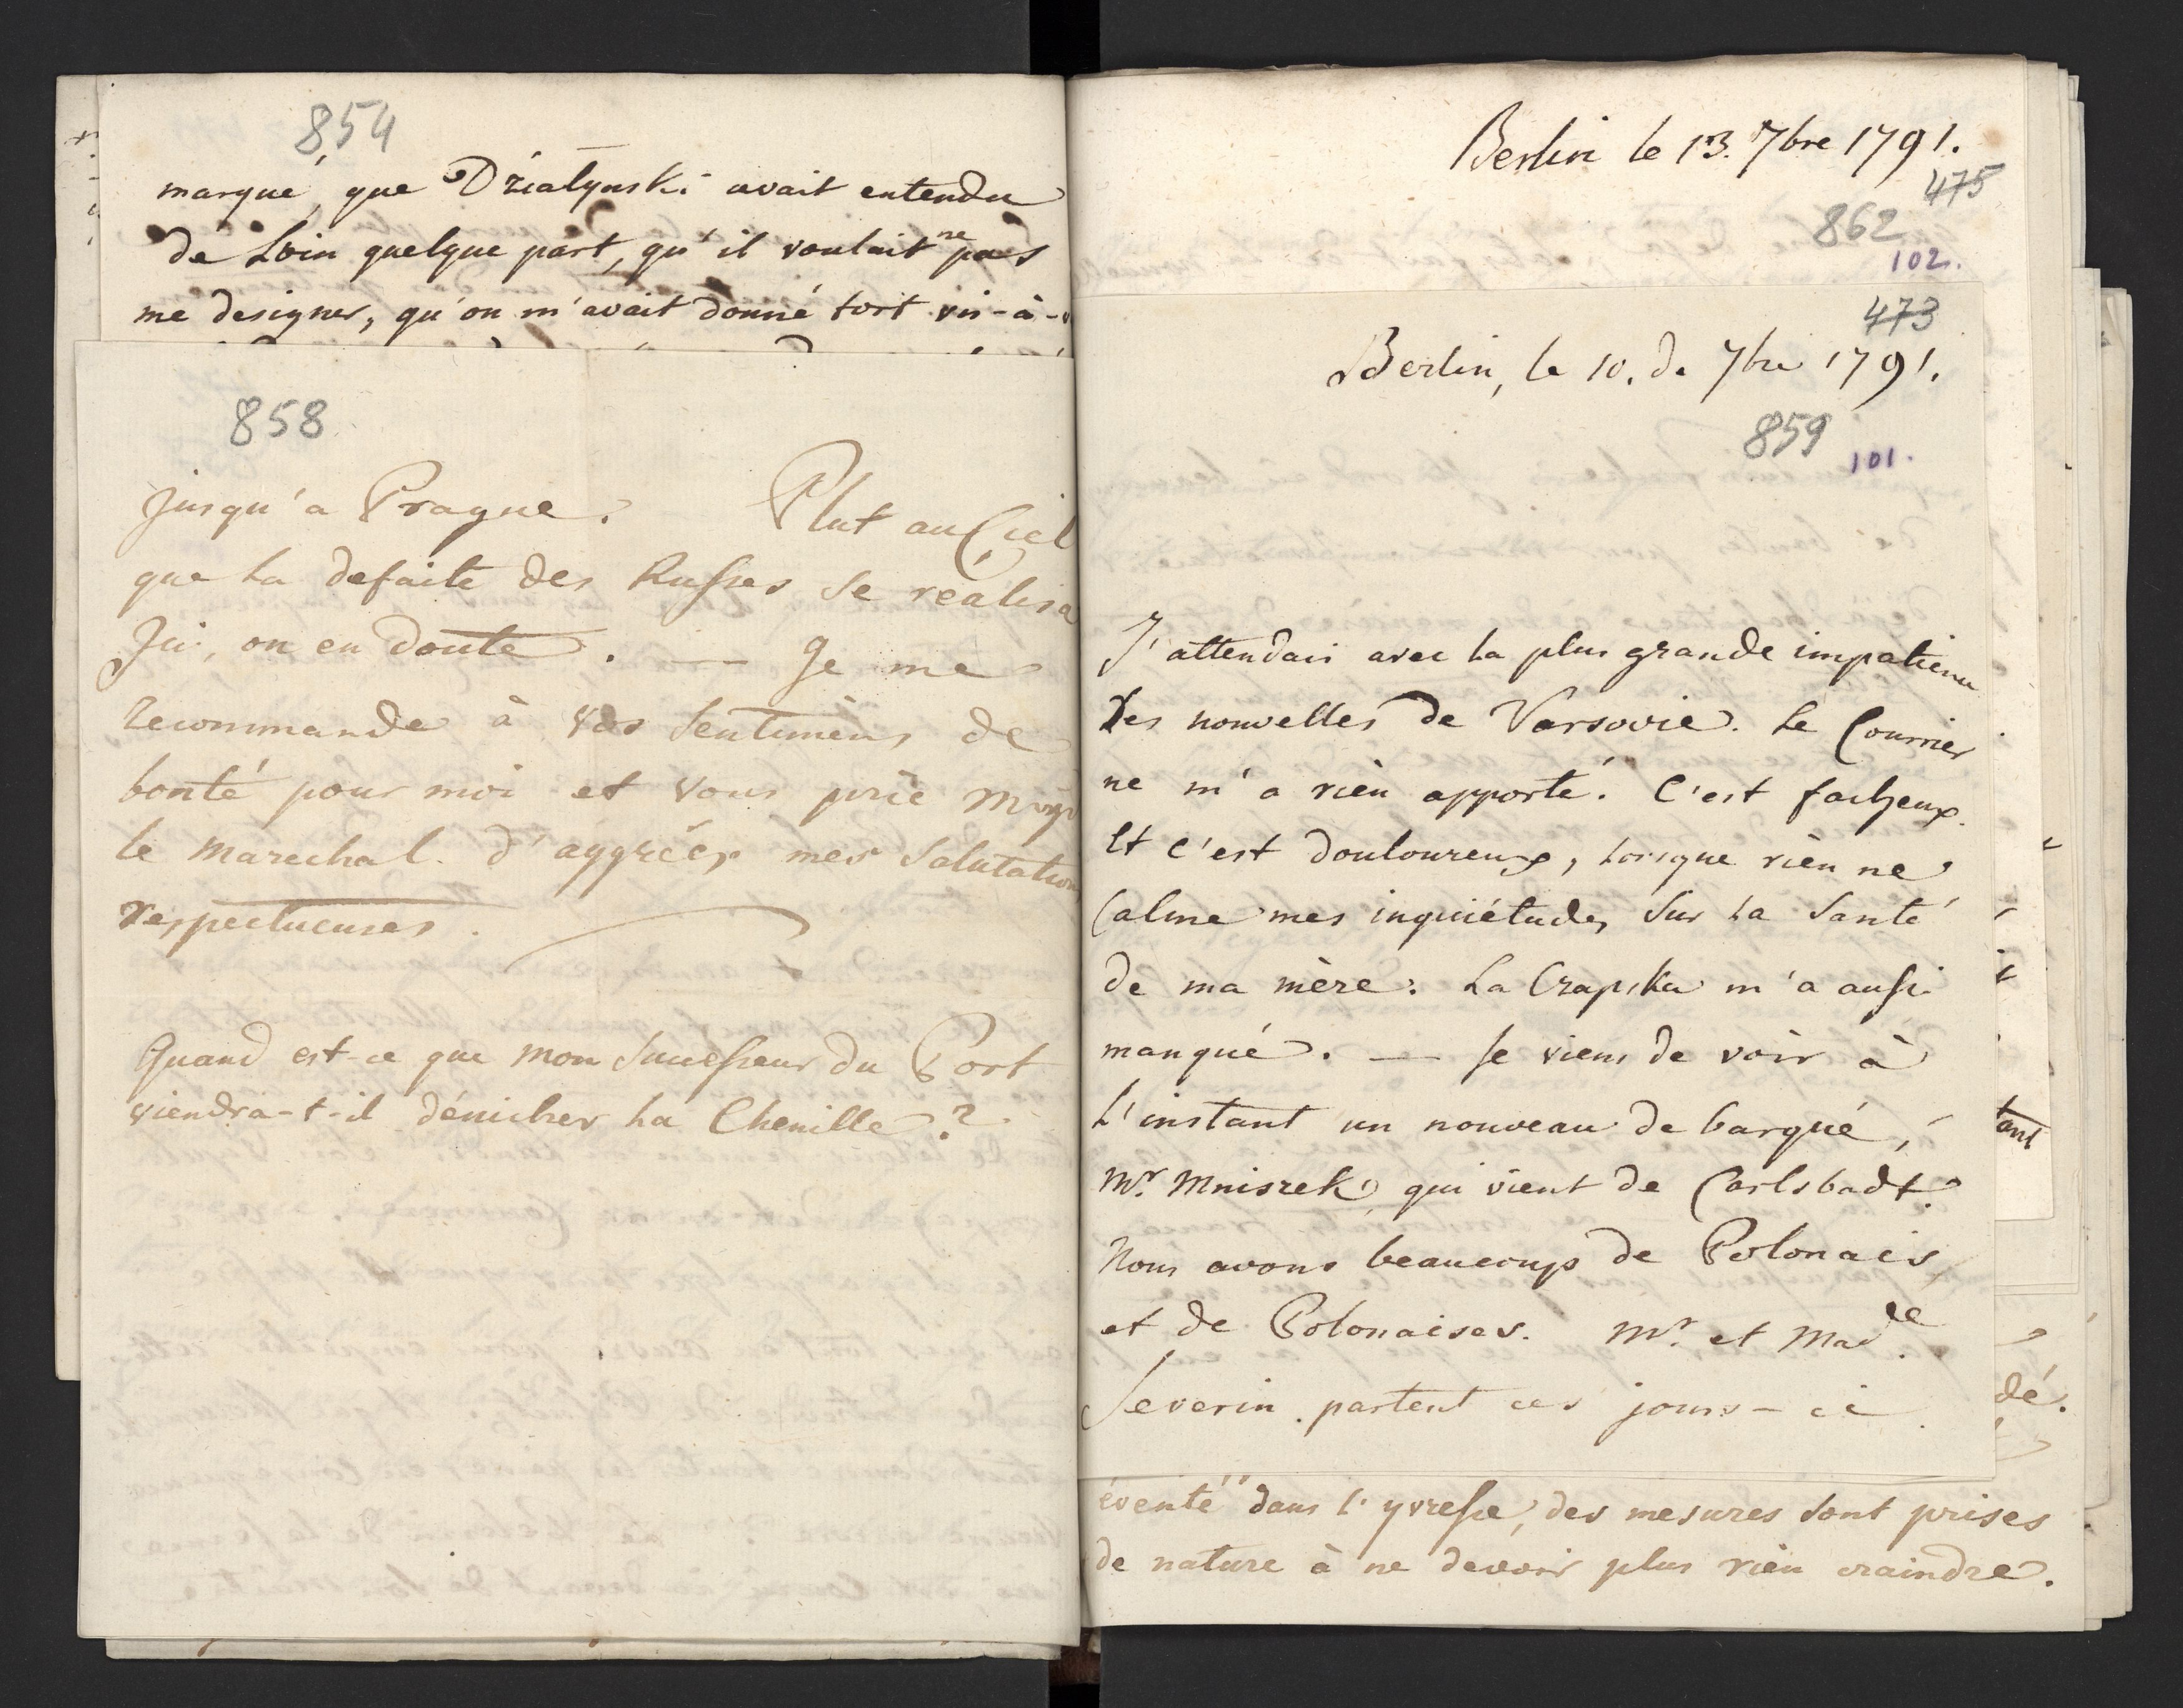 854
marqué, que Dziatynski avait entendu
de Loin quelque part, qu'il voulait ne pas
me designer, qu'on m'avait donné tort vis-à-v
858
jusqu'a Prague. Plut au Ciel
que La defaite des Russes se réalisa
Ici, on en doute. — Je me
recommande à vos Sentimens de
bonté pour moi et vous prie Msgr
le Marechal d'aggréer mes Salutation
respectueuses.
Quand est-ce que mon Successeur du Port
viendra-t-il dénicher La Chenille?
Berlin le 13. 7bre 1791.
475
862
102.
473
Berlin, le 10. de 7bre 1791.
859
101.
J'attendais avec La plus grande impatience
Des nouvelles de Varsovie. Le Courrier
ne m'a rien apporté. C'est facheux.
Et c'est douloureux, Lorsque rien ne
Calme mes inquiétudes Sur La Santé
de ma mère: La Czapska m'a aussi
manqué. — Je viens de voir à
L'instant un nouveau debarqué,
Mr. Mniszek qui vient de Carlsbadt.
Nous avons beaucoup de Polonais,
et de Polonaises. Mr. et Made.
Severin partent ces jours-ci
éventé dans l'yvresse, des mesures sont prises
de nature à ne devoir plus rien craindre.
tant
dé.